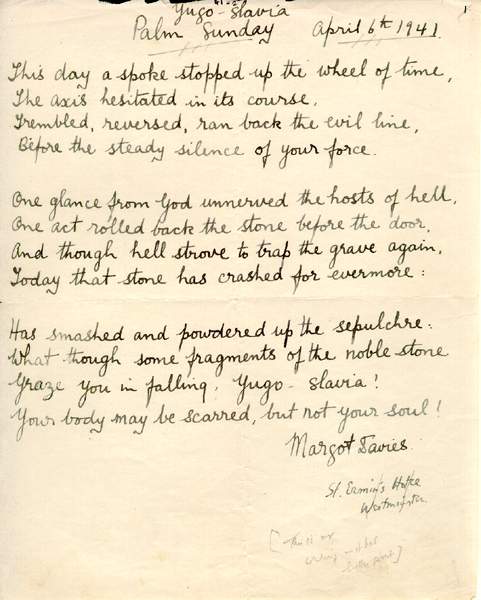 1
Yugo-Slavia
Palm Sunday April 6th 1941
This day a spoke stopped up the wheel of time,
The axis hesitated in its course,
Trembled, reversed, ran back the evil line,
Before the steady silence of your force.
One glance from God unnerved the hosts of hell,
One act rolled back the stone before the door,
And though hell strove to trap the grave again,
Today that stone has crashed for evermore:
Has smashed and powdered up the sepulchre:
What though some fragments of the noble stone
Graze you in falling, Yugo-Slavia!
Your body may be scarred, but not your soul!
Margot Davies.
St. Ermin's
Westminster